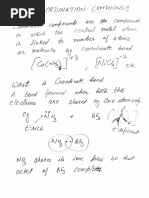 COORDINATION COMPOUNDS
compounds are the compounds
in which the central metal atom
is linked to number of atoms
or molecules by coordinate bond.
etc.
What is Coordinate bond.
A bond formed when both the
electrons are shared by one atom
Eg NH3 + BF3
NH3 → BF3
NH3 shares its lone pair so that
octet of BF3 complete